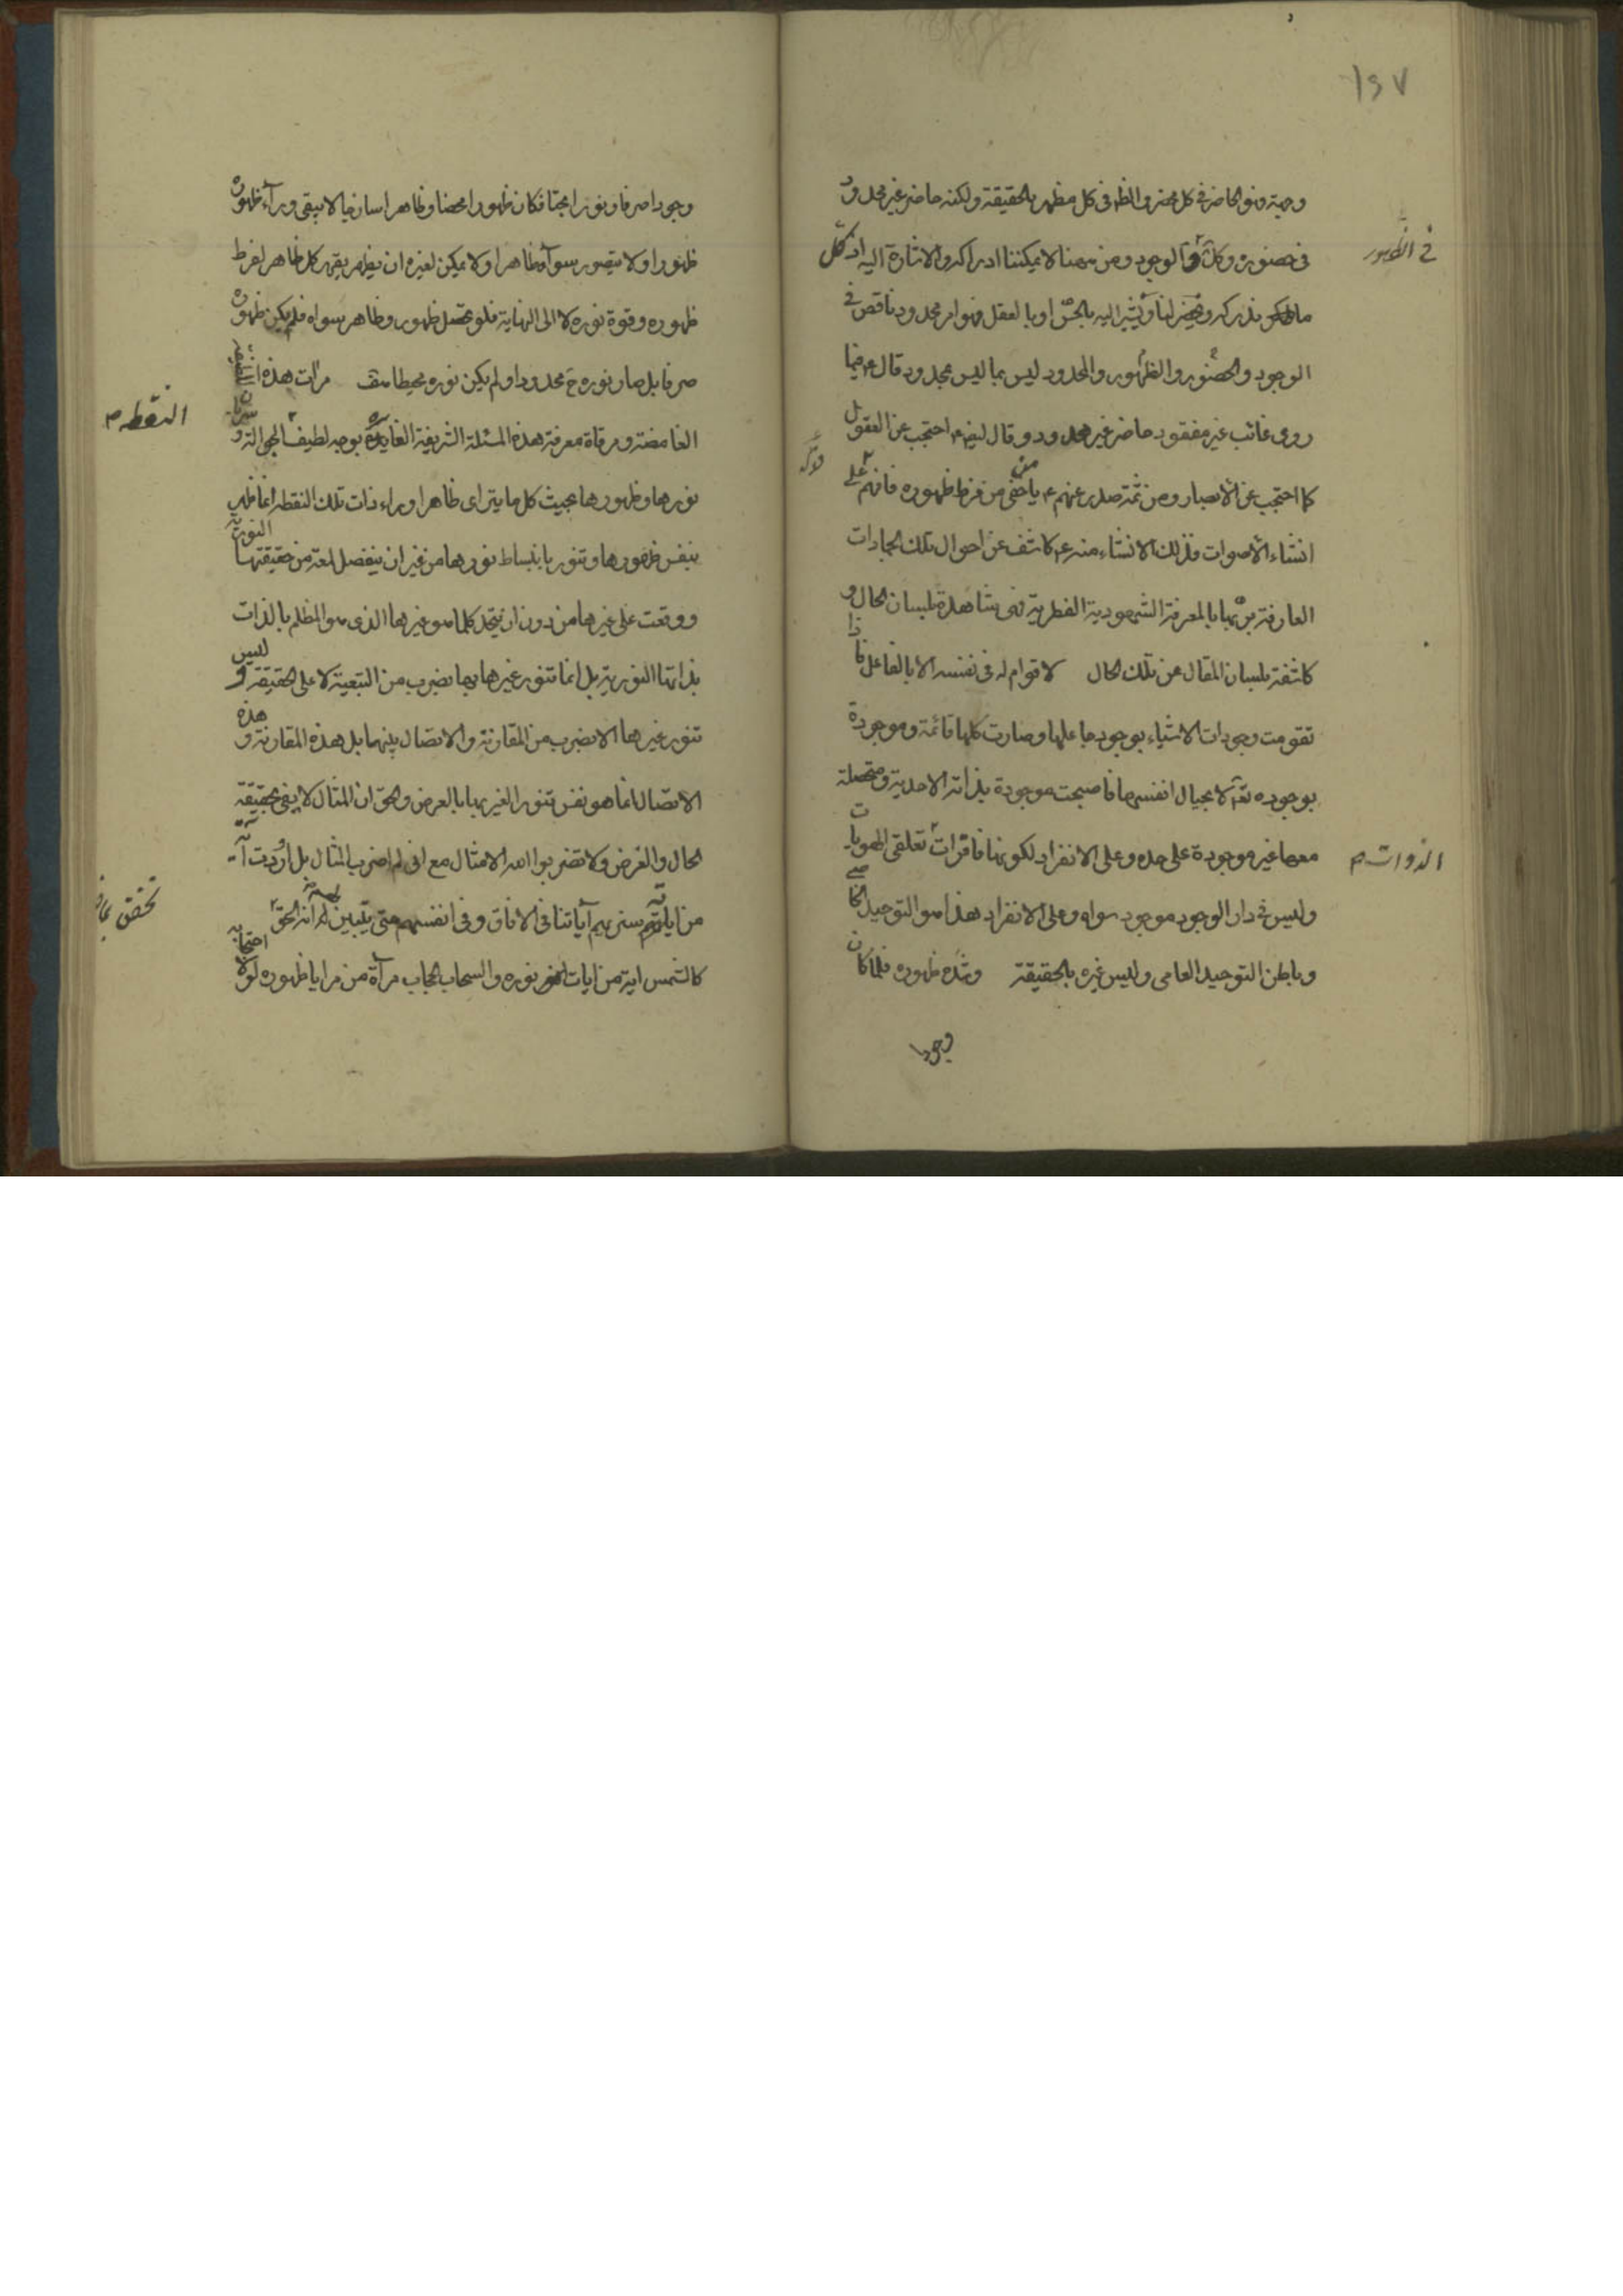 ١٥٧
وجهة فهو الحاضر في كل محضر والظ في كل مظهر بالحقيقة ولكنه حاضر غير محدود
في حضوره وكل الوجود ومن ههنا لا يمكننا ادراكه والاشارة اليه اذ كل
في الظهور
ما ندركه ويحضر لنا ونشير اليه بالحس او بالعقل فهو امر محدود ناقص في
الوجود والحضور والظهور والمحدود ليس بما ليس بمحدود قال ع فيما
روى غائب غير مفقود حاضر غير محدود وقال ايضا ع احتجب عن العقول
كما احتجب عن الابصار ومن ثمة صدر عنهم ع يا من خفي من فرط ظهوره فافهم
انشاء الأصوات فذلك الانشاء منه ع كاشف عن احوال تلك الجمادات
العارفة بربها بالمعرفة الشهودية الفطرية فهي شاهدة بلسان الحال و
كاشفة بلسان المقال عن تلك الحال لا قوام له في نفسه الا بالفاعل فاذا
تقومت وجودات الاشياء بوجود جاعلها وصارت كلها قائمة وموجودة
بوجوده تع لا بحيال انفسها فاصبحت موجودة بذاته الاحدية ومتحصلة
معها غير موجودة على حده وعلى الانفراد لكونها فاقرات تعلقي الهويات
الذوات م
وليس في دار الوجود موجود سواه وعلى الانفراد هذا هو التوحيد الخاصي
وباطن التوحيد العامي وليس غيره بالحقيقة وشدة ظهوره فلما كان
وجودا
وجودا صرفا ونورا بحتا فكان ظهورا محضا وظاهرا ساذجا لا يبقى وراء ظهوره
ظهورا ولا يتصور سواه ظاهرا ولا يمكن لغيره ان يظهر يقهر كل ظاهر لفرط
ظهوره وقوة نوره لا الى النهاية فلو تحصل ظهور وظاهر سواه فلم يكن ظهوره
صرفا بل صار نوره ح محدودا ولم يكن نوره محيطا مرآت هذه
الغامضة ومرقاة معرفة هذه المسئلة الشريفة بوجه لطيف الجوالة و
النقطه م
نورها وظهورها بحيث كل ما يترآى ظاهرا وراء ذات تلك النقطة انما ظهر
بنفس ظهورها وتنور بانبساط نورها من غير ان ينفصل لمعة من حقيقتها النورية
ووقعت على غيرها من دون ان يتحد كلما هو غيرها الذي هو المظلم بالذات
بذاتها النورية بل انما تنور غيرها بها بضرب من التبعية لا على الحقيقة وليس
تنور غيرها الا بضرب من المقارنة والاتصال بينهما بل هذه المقارنة وهذه
الاتصال انما هو نفس تنور الغير بها بالعرض والحق ان المثال لا يفي بحقيقة
الحال والغرض ولا تضربوا الله الامثال مع اني لم اضرب المثال بل اردت آية
من اياته سنريهم آياتنا في الافاق وفي انفسهم حتى يتبين لهم انه الحق
تحقق
كالشمس اية من ايات نوره والسحاب الحجاب مرآة من مرايا ظهوره لولا احتجابه